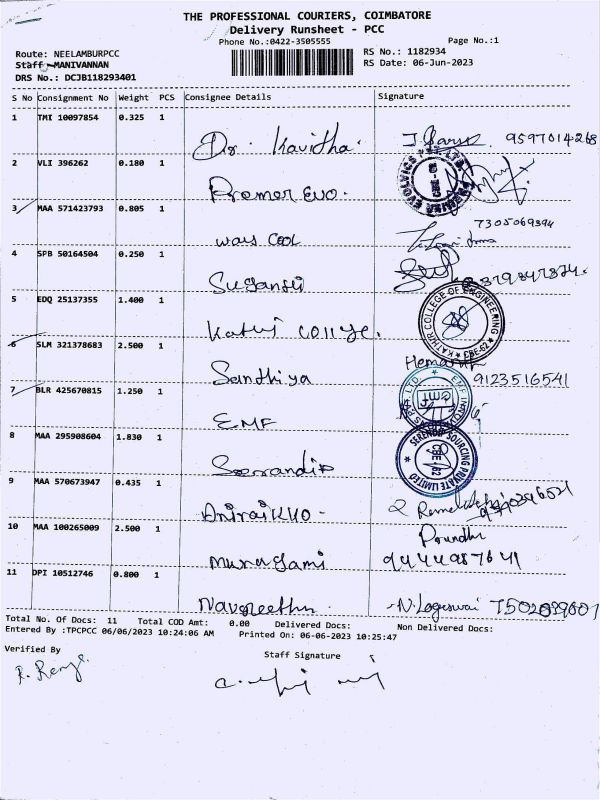 THE PROFESSIONAL COURIERS, COIMBATORE
Delivery Runsheet - PCC
Phone No.:0422-3505555 Page No.:1
Route: NEELAMBURPCC RS No.: 1182934
Staff :MANIVANNAN RS Date: 06-Jun-2023
DRS No.: DCJB118293401
S No Consignment No Weight PCS Consignee Details Signature
1 TMI 10097854 0.325 1 Dr. Kavitha. 9597014268
2 VLI 396262 0.180 1 Premer Evo.
3 MAA 571423793 0.805 1 ways cool 7305069394
4 SPB 50164504 0.250 1 Suganthi
5 EDQ 25137355 1.400 1 Kathir college. KATHIR COLLEGE OF ENGINEERING CBE-62
6 SLM 321378683 2.500 1 Sandhiya Hemanth 9123516541
7 BLR 425670815 1.250 1 EMF emf
8 MAA 295908604 1.830 1 Serendip SERENDIP SOURCING PRIVATE LIMITED
9 MAA 570673947 0.435 1
10 MAA 100265009 2.500 1 Murugami 9444987641
11 DPI 10512746 0.800 1 Navaneetha. N. Logeswari
Total No. Of Docs: 11 Total COD Amt: 0.00 Delivered Docs: Non Delivered Docs:
Entered By :TPCPCC 06/06/2023 10:24:06 AM Printed On: 06-06-2023 10:25:47
Verified By Staff Signature